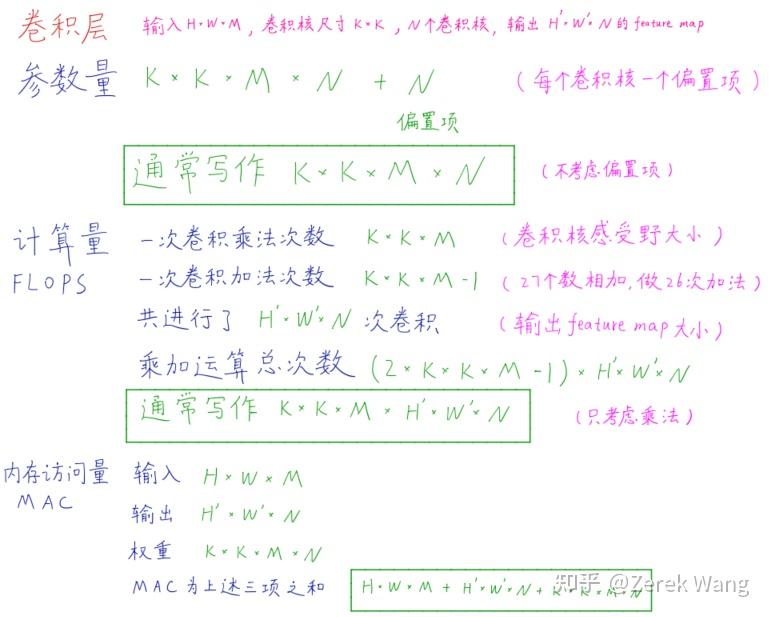 卷积层 输入H×W×M, 卷积核尺寸K×K, N个卷积核, 输出H'×W'×N的feature map
参数量 K × K × M × N + N (每个卷积核一个偏置项)
偏置项
通常写作 K × K × M × N (不考虑偏置项)
计算量 一次卷积乘法次数 K × K × M (卷积核感受野大小)
FLOPS 一次卷积加法次数 K × K × M - 1 (27个数相加,做26次加法)
共进行了 H'×W'×N 次卷积 (输出feature map大小)
乘加运算总次数 (2 × K × K × M - 1) × H'×W'×N
通常写作 K × K × M × H'×W'×N (只考虑乘法)
内存访问量 输入 H × W × M
MAC
输出 H' × W' × N
权重 K × K × M × N
MAC为上述三项之和 H × W × M + H'×W'×N + K × K × M × N
知乎 @Zerek Wang